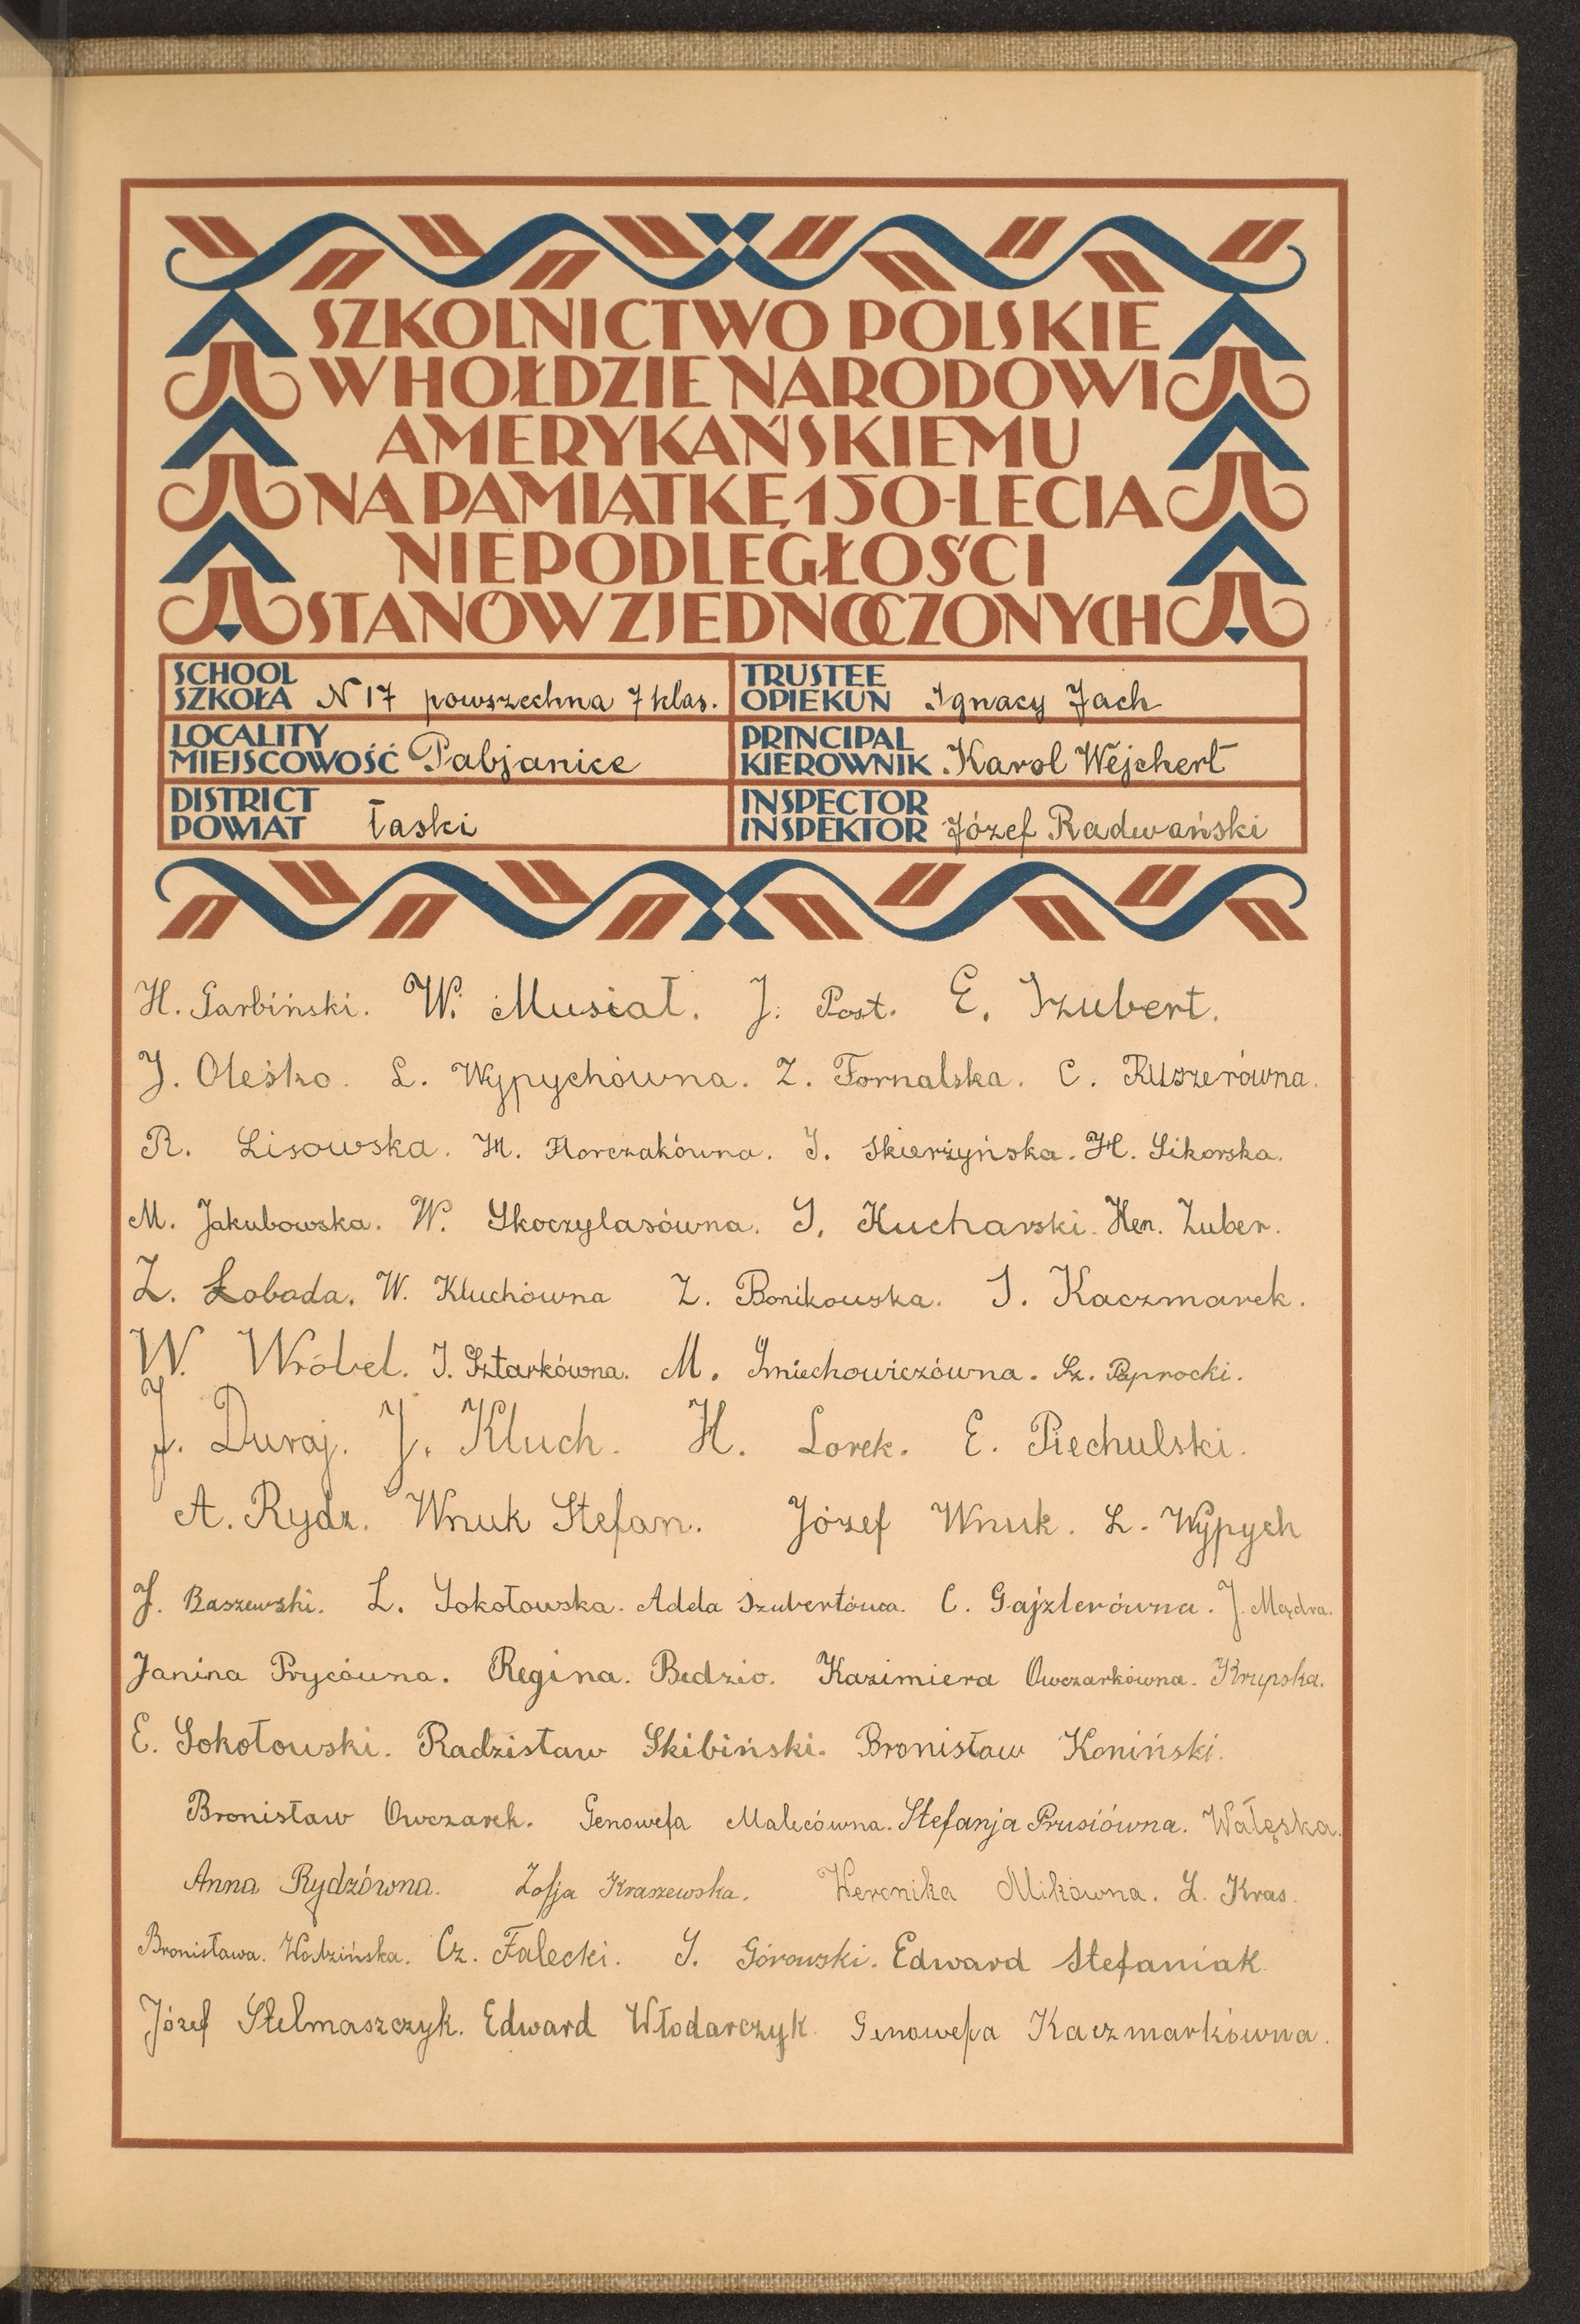 SZKOLNICTWO POLSKIE
W HOŁDZIE NARODOWI
AMERYKAŃSKIEMU
NA PAMIĄTKĘ 150-LECIA
NIEPODLEGŁOŚCI
STANÓW ZJEDNOCZONYCH
SCHOOL
SZKOŁA N 17 powszechna 7 klas.
TRUSTEE
OPIEKUN Ignacy Jach
LOCALITY
MIEJSCOWOŚĆ Pabjanice
PRINCIPAL
KIEROWNIK Karol Wejchert
DISTRICT
POWIAT Łaski
INSPECTOR
INSPEKTOR Józef Radwański
H. Garbiński. W. Musiał. J. Post. E. Szubert.
J. Oleśko. L. Wypychówna. Z. Fornalska. C. Ruszerówna.
R. Lisowska. M. Florczakówna. J. Skierżyńska. H. Sikorska.
M. Jakubowska. W. Skoczylasówna. S. Kucharski. Hen. Zuber.
Z. Łoboda. W. Kluchówna Z. Bonikowska. J. Kaczmarek.
W. Wróbel. J. Sztarkówna. M. Śmiechowiczówna. Sz. Paprocki.
J. Duraj. J. Kluch. H. Lorek. E. Piechulski.
A. Rydz. Wnuk Stefan. Józef Wnuk. L. Wypych
J. Baszewski. L. Sokołowska. Adela Szubertówna. C. Gajzlerówna. J. Mądra.
Janina Prycówna. Regina. Bedzio. Kazimiera Owczarkówna. Krupska.
E. Sokołowski. Radzisław Skibiński. Bronisław Koniński.
Bronisław Owczarek. Genowefa Malecówna. Stefanja Prusiówna. Wałęska.
Anna Rydzówna. Zofja Kraszewska. Weronika Mikówna. L. Kras.
Bronisława. Wodzińska. Cz. Falecki. S. Górowski. Edward Stefaniak
Józef Stelmaszczyk. Edward Włodarczyk. Genowefa Kaczmarkówna.